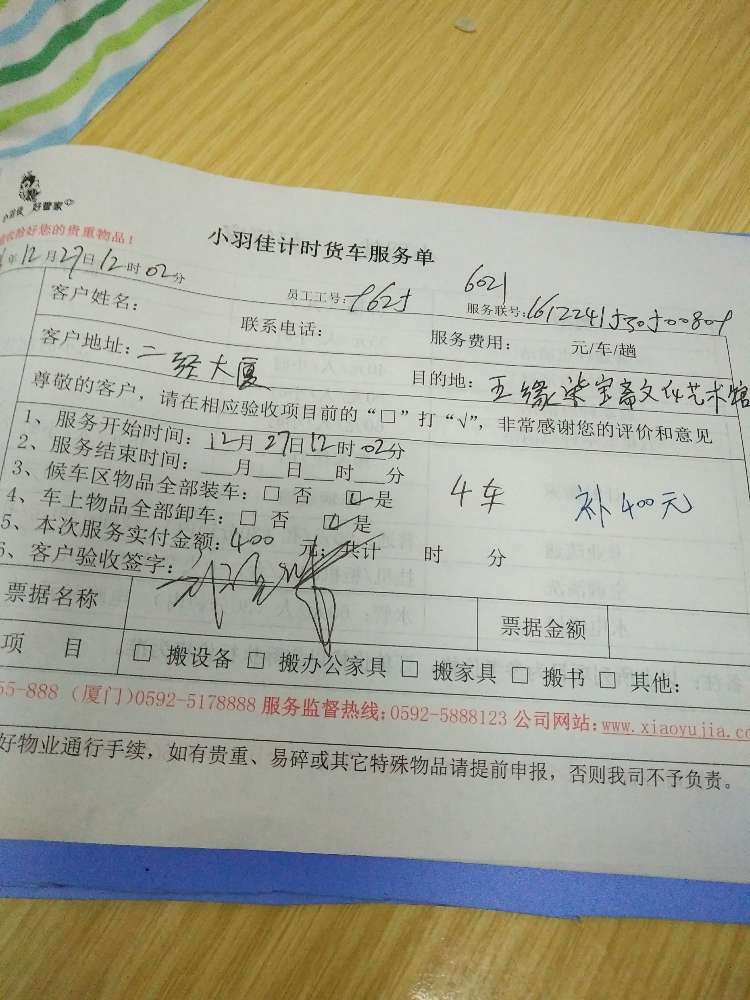 好管家
您的贵重物品！
小羽佳计时货车服务单
年12月27日12时02分
员工工号：9625
6021
服务联号：
客户姓名：
联系电话：
服务费用： 元/车/趟
客户地址：二轻大厦
目的地：五缘 宝斋文化艺术馆
尊敬的客户，请在相应验收项目前的“□”打“√”，非常感谢您的评价和意见
1、服务开始时间：12月27日12时02分
2、服务结束时间：__月__日__时__分
3、候车区物品全部装车：□ 否 ☑ 是
4车 补400元
4、车上物品全部卸车：□ 否 ☑ 是
5、本次服务实付金额：400 元；共计 时 分
6、客户验收签字：
票据名称
票据金额
项 目
□ 搬设备 □ 搬办公家具 □ 搬家具 □ 搬书 □ 其他：
55-888 (厦门)0592-5178888 服务监督热线：0592-5888123 公司网站：www.xiaoyujia.co
好物业通行手续，如有贵重、易碎或其它特殊物品请提前申报，否则我司不予负责。